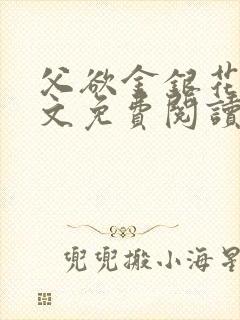 父欲金银花
文免費閱讀
兜兜搬小海星